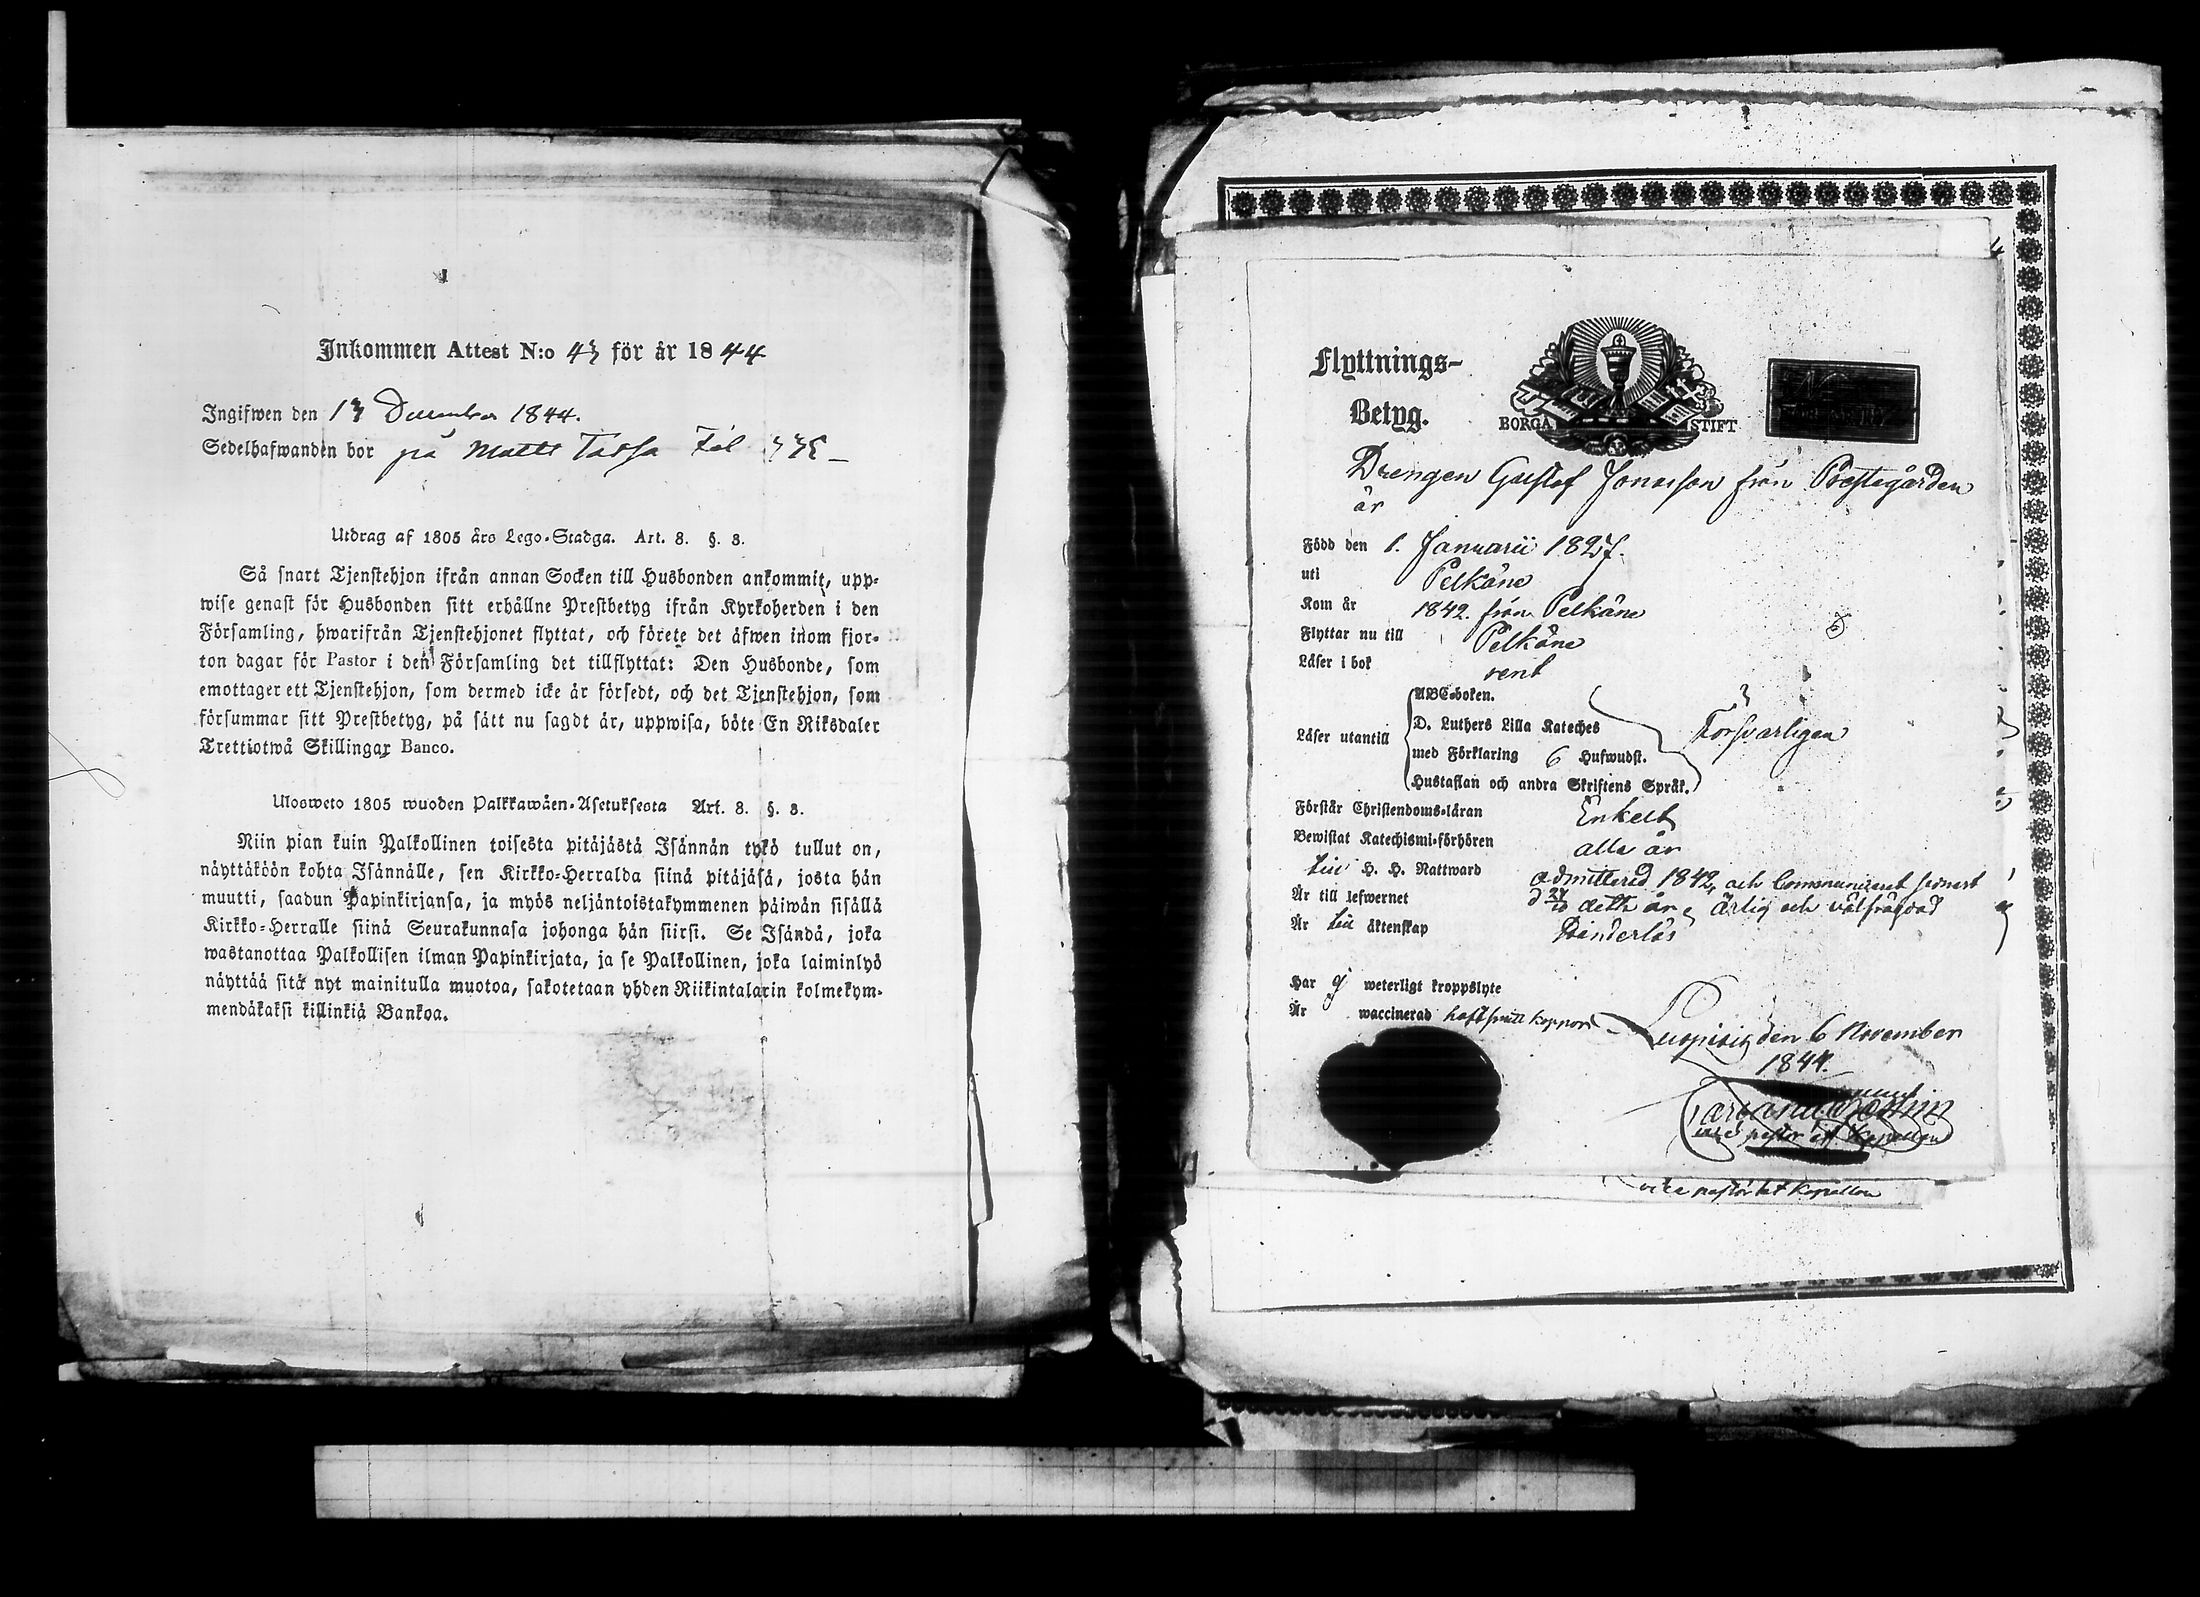 Inkommen Attest N:o 43 för år 1844
Ingifwen den 13 December 1844.
Sedelhafwanden bor på Matte Fol 336
Utdrag af 1805 års Lego-Stadga. Art. 8. §. 8.
Så snart Tjenstehjon ifrån annan Socken till Husbonden ankommit, upp-
wise genast för Husbonden sitt erhållne Prestbetyg ifrån Kyrkoherden i den
Församling, hwarifrån Tjenstehjonet flyttat, och förete det äfwen inom fjor-
ton dagar för Pastor i den Församling det tillflyttat: Den Husbonde, som
emottager ett Tjenstehjon, som dermed icke är försedt, och det Tjenstehjon, som
försummar sitt Prestbetyg, på sätt nu sagdt är, uppwisa, böte En Riksdaler
Trettiotwå Skillingar Banco.
Ulosweto 1805 wuoden Palkkawäen-Asetuksesta Art. 8. §. 8.
Niin pian kuin Palkollinen toisesta pitäjästä Isännän tykö tullut on,
näyttäköön kohta Isännälle, sen Kirkko-Herralda siinä pitäjäsä, josta hän
muutti, saadun Papinkirjansa, ja myös neljäntoistakymmenen päiwän sisällä
Kirkko-Herralle siinä Seurakunnasa johonga hän siirsi. Se Isändä, joka
wastanottaa Palkollisen ilman Papinkirjata, ja se Palkollinen, joka laiminlyö
näyttää sitä nyt mainitulla muotoa, sakotetaan yhden Riikintalarin kolmekym-
mendäkaksi killinkiä Bankoa.
Flyttnings-
Betyg.
BORGÅ STIFT
Drengen Gustaf Jonasson från Prestegården
är
Född den 1. Januarii 1827.
uti Pelkäne
Kom år 1842. från Pelkäne
Flyttar nu till Pelkäne
Läser i bok rent
Läser utantill
ABC-boken.
D. Luthers Lilla Kateches
med Förklaring 6 Hufwudst.
Hustaflan och andra Skriftens Språk.
Försvarligen
Förstår Christendoms-läran Enkelt
Bewistat Katechismi-förhören alla år
till H. H. Nattward admitterad 1842, och Communicerat senast
d 27/10 detta år,
Är till lefwernet ärlig och välfrägdad
Är till äktenskap Bänderlös
Har ej weterligt kroppslyte
Är waccinerad haft små koppor
den 6 November
1844.
vice pastor et Kapellan
vice pastor et Kapellan